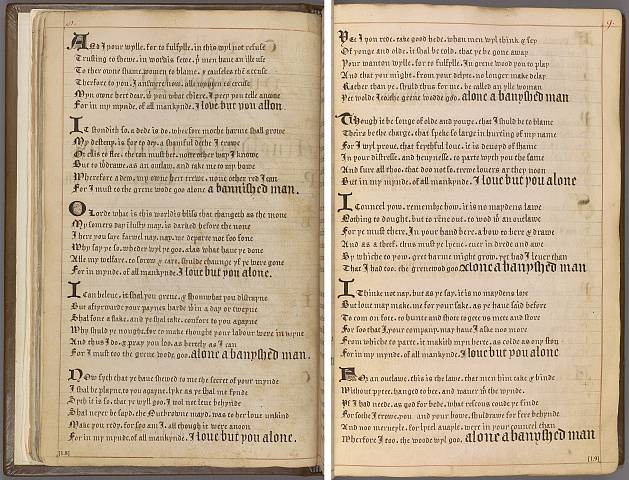 And I your wylle. for to fulfylle. in this wyl not refuse
Trusting to shewe. in wordis fewe. þt men haue an ille use
To ther owne shame. women to blame. & causeles the accuse
Therfore to you. I answere now. alle wymen to excuse
Myn owne hert dear. wt you what chiere. I prey you tell anoone
For in my mynde. of all mankynde. I loue but you allon.
It stondith so. a dede is do. wherfore moche harme shall growe
My desteny. is for to dey. a shamful dethe I trowe
Or ellis to flee. the ton must bee. none other wey I knowe
But to wtdrawe. as an outlaw. and take me to my bowe
Wherefore adew. my owne hert trewe. none other red I can
For I must to the grene wode goo alone a bannished man.
O Lorde what is this worldis bliss that changeth as the mone
My somers day i lusty may. is darked before the none
I here you saye farwel nay, nay. we departe not soo sone
Why say ye so. wheder wyl ye goo. alas what haue ye done
Alle my welfare. to sorow & care. shulde chaunge yf ye were gone
For in my mynde. of all mankynde. I loue but you alone.
I can beleue. it shal you greue. & shomwhat you distrayne
But aftyrwarde your paynes harde wtin a day or tweyne
Shal sone a slake. and ye shal take. confort to you agayne
Why shuld ye nought. for to make thought your labour were in vayne
And thus I do. & pray you loo. as hertely as I can
For I must too the grene wode goo. alone a banyshed man.
Now syth that ye haue shewed to me the secret of your mynde
I shal be playne. to you agayne. lyke as ye shal me fynde
Syth it is so. that ye wyll goo. I wol not leue behynde
Shal neuer be sayd. the Nutbrowne mayd. was to her loue unkind
Make you redy. for soo am I. all though it were anoon
For in my mynde. of all mankynde. I loue but you alone.
[1.8]
9.
Yet I you rede. take good hede. whan men wyl think & sey
Of yonge and olde. it shal be told. that ye be gone away
Your wanton wylle. for to fulfylle. In grene wood you to play
And that you might. from your delyte. no longer make delay
Rather than ye. shuld thus for me. be called an ylle woman
Yet wolde I to the grene wodde goo. alone a banyshed man
Though it be songe of olde and yonge. that I shuld be to blame
Theirs be the charge. that speke so large in hurting of my name
For I wyl proue. that feythful loue. it is deuoyd of shame
In your distresse. and heuynesse. to parte wyth you the same
And sure all thoo. that doo not so. trewe louers ar they noon
But in my mynde. of all mankynde. I loue but you alone
I Counsel yow. remembre how. it is no maydens lawe
Nothing to dought. but to renne out. to wod wt an outlawe
For ye must there. In your hand bere. a bow to bere & drawe
And as a theef. thus must ye lyeue. euer in drede and awe
By whiche to yow. gret harme might grow. yet had I leuer than
That I had too. the grenewod goo. alone a banyshed man
I Thinke not nay. but as ye say. it is no maydens lore
But loue may make. me for your sake. as ye haue said before
To com on fote. to hunte and shote to gete us mete and store
For soo that I. your company. may haue I aske noo more
From whiche to parte. it makith myn herte. as colde as ony ston
For in my mynde. of all mankynde. I loue but you alone
For an outlawe. this is the lawe. that men him take & binde
Without pytee. hanged to bee. and wauer wt the wynde.
Yf I had neede. as god forbede. what rescous coude ye finde
For sothe I trowe. you and your bowe. shuld drawe for fere behynde
And noo merueyle. for lytel auayle. were in your councel than
Wherfore I too. the woode wyl goo. alone a banyshed man
[1.9]